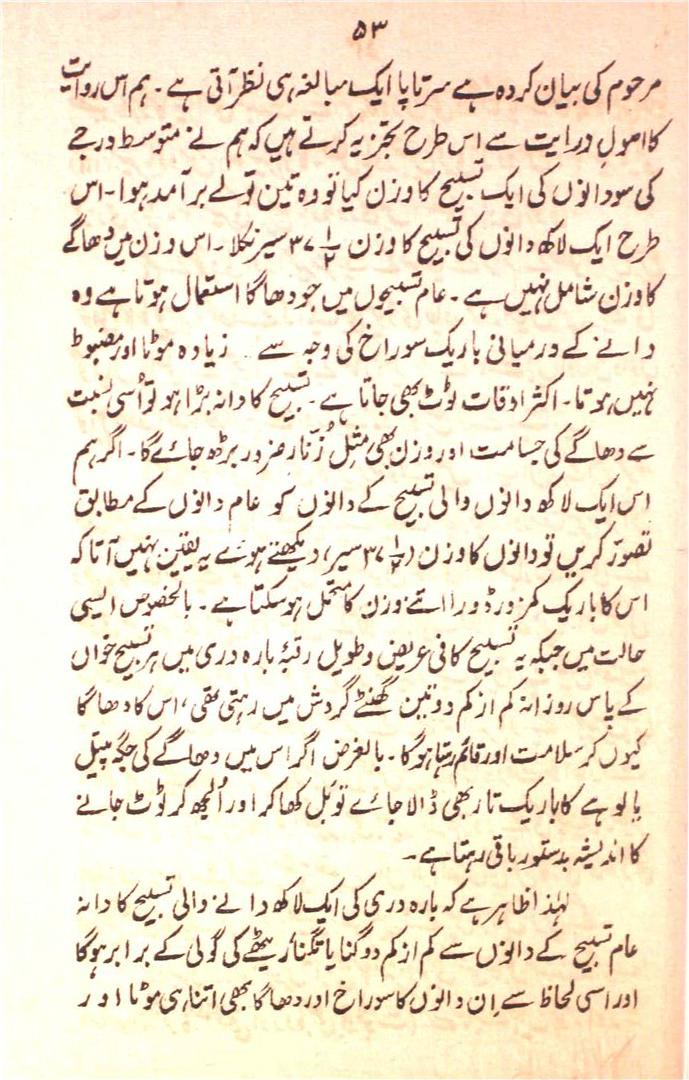 ۵۳
مرحوم کی بیان کردہ ہے سرتاپا ایک مبالغہ ہی نظر آتی ہے ۔ ہم اس روایت
کا اصولِ درایت سے اس طرح تجزیہ کرتے ہیں کہ ہم نے متوسط درجے
کی سو دانوں کی ایک تسبیح کا وزن کیا تو وہ تین تولے برآمد ہوا ۔ اس
طرح ایک لاکھ دانوں کی تسبیح کا وزن ۳۷ ۱/۲ سیر نکلا ۔ اس وزن میں دھاگے
کا وزن شامل نہیں ہے ۔ عام تسبیحوں میں جو دھاگا استعمال ہوتا ہے وہ
دانے کے درمیانی باریک سوراخ کی وجہ سے زیادہ موٹا اور مضبوط
نہیں ہوتا ۔ اکثر اوقات ٹوٹ بھی جاتا ہے ۔ تسبیح کا دانہ بڑا ہو تو اُسی نسبت
سے دھاگے کی جسامت اور وزن بھی مثلِ زُنّار ضرور بڑھ جائے گا ۔ اگر ہم
اس ایک لاکھ دانوں والی تسبیح کے دانوں کو عام دانوں کے مطابق
تصوّر کریں تو دانوں کا وزن (۳۷ ۱/۲ سیر) دیکھتے ہوئے یہ یقین نہیں آتا کہ
اس کا باریک کمزور ڈورا اتنے وزن کا متحمل ہو سکتا ہے ۔ بالخصوص ایسی
حالت میں جبکہ یہ تسبیح کافی عریض و طویل رقبۂ بارہ دری میں ہر تسبیح خواں
کے پاس روزانہ کم از کم دو تین گھنٹے گردش میں رہتی تھی ، اس کا دھاگا
کیوں کر سلامت اور قائم رہتا ہوگا ۔ بالغرض اگر اس میں دھاگے کی جگہ پیتل
یا لوہے کا باریک تار بھی ڈالا جائے تو بل کھا کر اور اُلجھ کر ٹوٹ جانے
کا اندیشہ بدستور باقی رہتا ہے ۔
لہٰذا ظاہر ہے کہ بارہ دری کی ایک لاکھ دانے والی تسبیح کا دانہ
عام تسبیح کے دانوں سے کم از کم دوگنا یا تگنا ریٹھے کی گولی کے برابر ہوگا
اور اسی لحاظ سے اِن دانوں کا سوراخ اور دھاگا بھی اتنا ہی موٹا اور